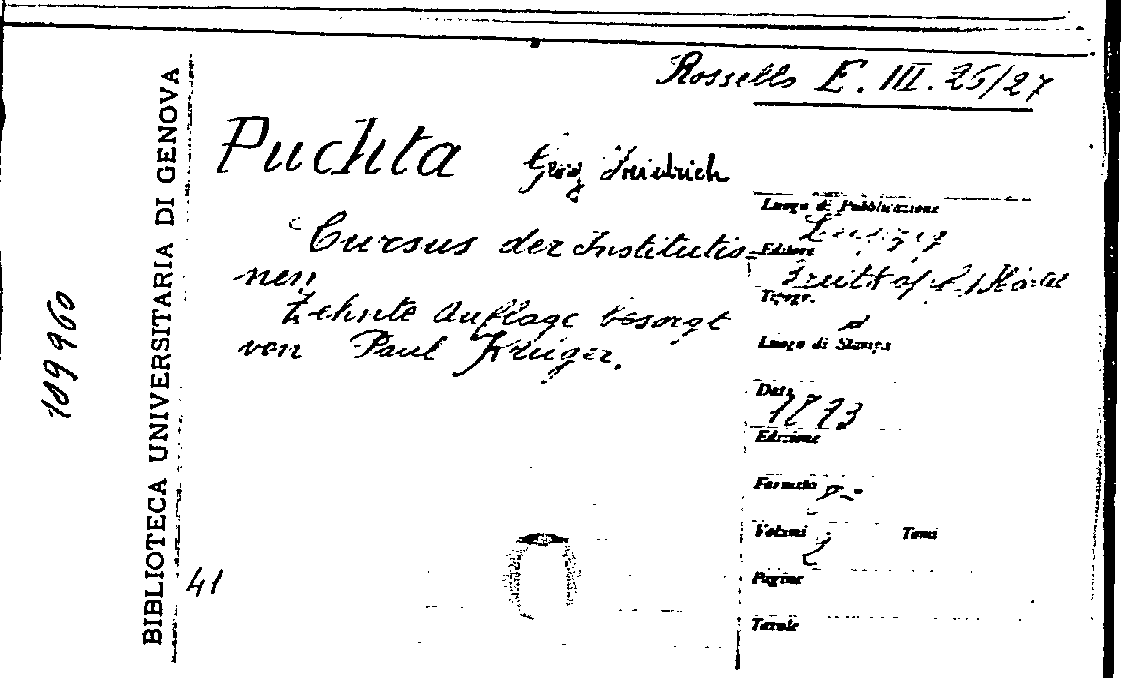 Rossello E. III. 26/27
BIBLIOTECA UNIVERSITARIA DI GENOVA
189960
41
Puchta Georg Friedrich
Cursus der Institutio=
nen
Zehnte Auflage besorgt
von Paul Krüger.
Luogo di Pubblicazione
Leipzig
Editore
Breitkopf & Härtel
Tipogr.
Luogo di Stampa
Data
1893
Edizione
Formato 8°
Volumi 2 Tomi
Pagine
Tavole